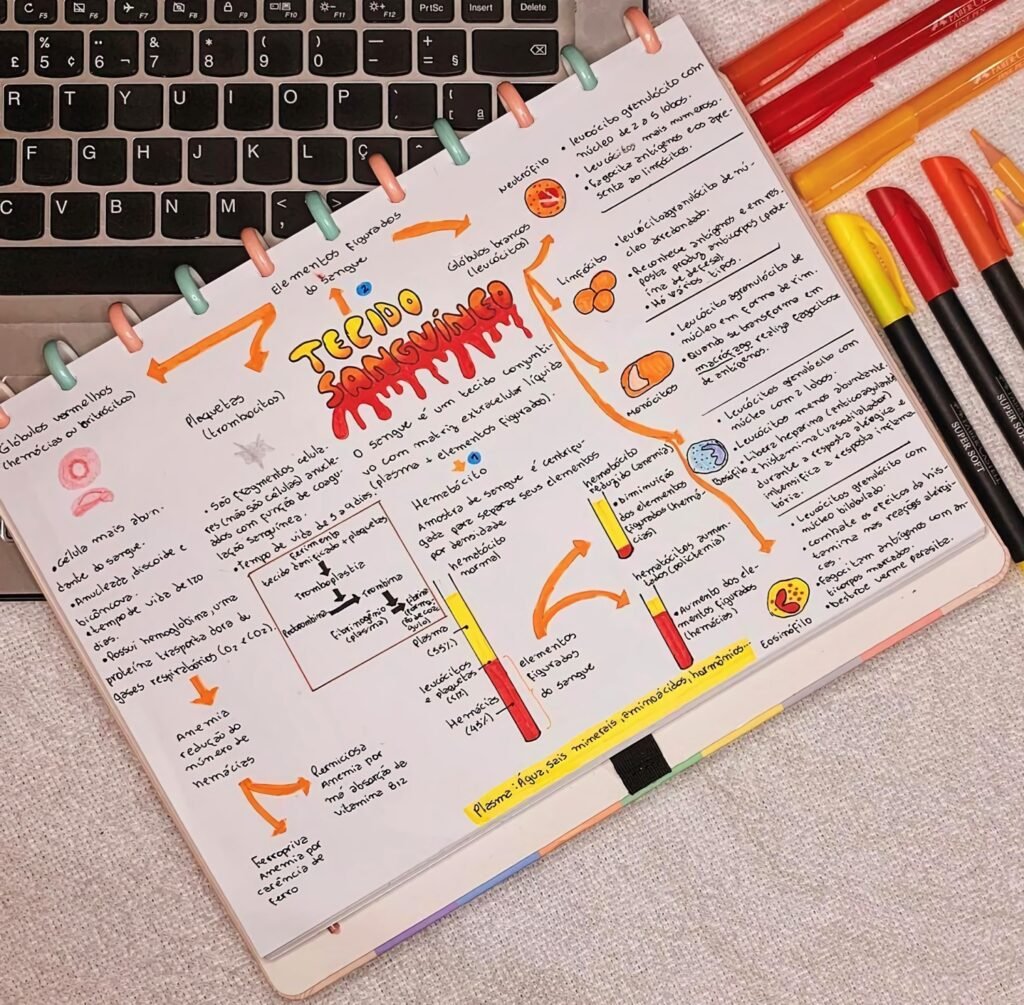 TECIDO
SANGUÍNEO
O sangue é um tecido conjunti-
vo com matriz extracelular líquida
(plasma + elementos figurados).
1
Hematócito
Amostra de sangue é centrifu-
gada para separar seus elementos
por densidade
hematócito
normal
plasma
(55%)
leucócitos
e plaquetas
Hemácias
(45%)
elementos
figurados
do sangue
hematócito
reduzido (anemia)
• Diminuição
dos elementos
figurados (hemá-
cias)
hematócitos aumen-
tados (policitemia)
• Aumento dos ele-
mentos figurados
(hemácias)
Plasma: Água, sais minerais, aminoácidos, hormônios...
2
Elementos figurados
do sangue
Glóbulos vermelhos
(hemácias ou eritrócitos)
• célula mais abun-
dante do sangue.
• Anucleada, discoide e
bicôncova.
• tempo de vida de 120
dias.
• Possui hemoglobina, uma
proteína trasportadora du
gases respiratórios (O2 e CO2).
Anemia
redução do
número de
hemácias
Perniciosa
Anemia por
má absorção de
vitamina B12
Ferropriva
Anemia por
carência de
ferro
Plaquetas
(trombocitos)
• são fragmentos celula-
res (não são células) anucle-
ados com função de coagu-
lação sanguínea.
• Tempo de vida de 5 a 9 dias.
ferimento
tecido danificado + plaquetas
Tromboplastia
Protrombina
Trombina
Fibrinogênio
(plasma)
Fibrina
Glóbulos brancos
(leucócitos)
Neutrófilo
• leucócito granulócito com
núcleo de 2 a 5 lobos.
• leucócitos mais numeroso.
• fagocita antígenos e os apre-
senta ao linfócitos.
Linfócito
• leucócito agranulócito de nú-
cleo arredondado.
• Reconhece antígenos e em res
posta produz anticorpos (prote-
ína de defesa)
• Há vários tipos.
monócitos
• Leucócito agranulócito de
núcleo em forma de rim.
• Quando se transforma em
macrófago realiza fagocitose
de antígenos.
Basófilo
• Leucócitos granulócito
núcleo com 2 lobos.
• Leucócitos menos abundante
• Libera heparina (anticoagulante)
e histamina (vasodilatador)
durante a resposta alérgica e
intensifica a resposta inflama
tória.
Eosinófilo
• Leucócitos granulócito com
núcleo bilobulado.
• combate os efeitos da his-
tamina nas reações alérgi
• Fagocitam antígenos com an
ticorpos marcados.
• Destroe verme parasita.
SUPER SOFT
SUPER SOFT
F5
F6
F7
F8
F9
F10
F11
F12
PrtSc
Insert
Delete
£ 5 % ¢ 6 ¬ 7 & 8 * 9 ( 0 ) - + = §
R T Y U I O P
F G H J K L Ç
C V B N M < >